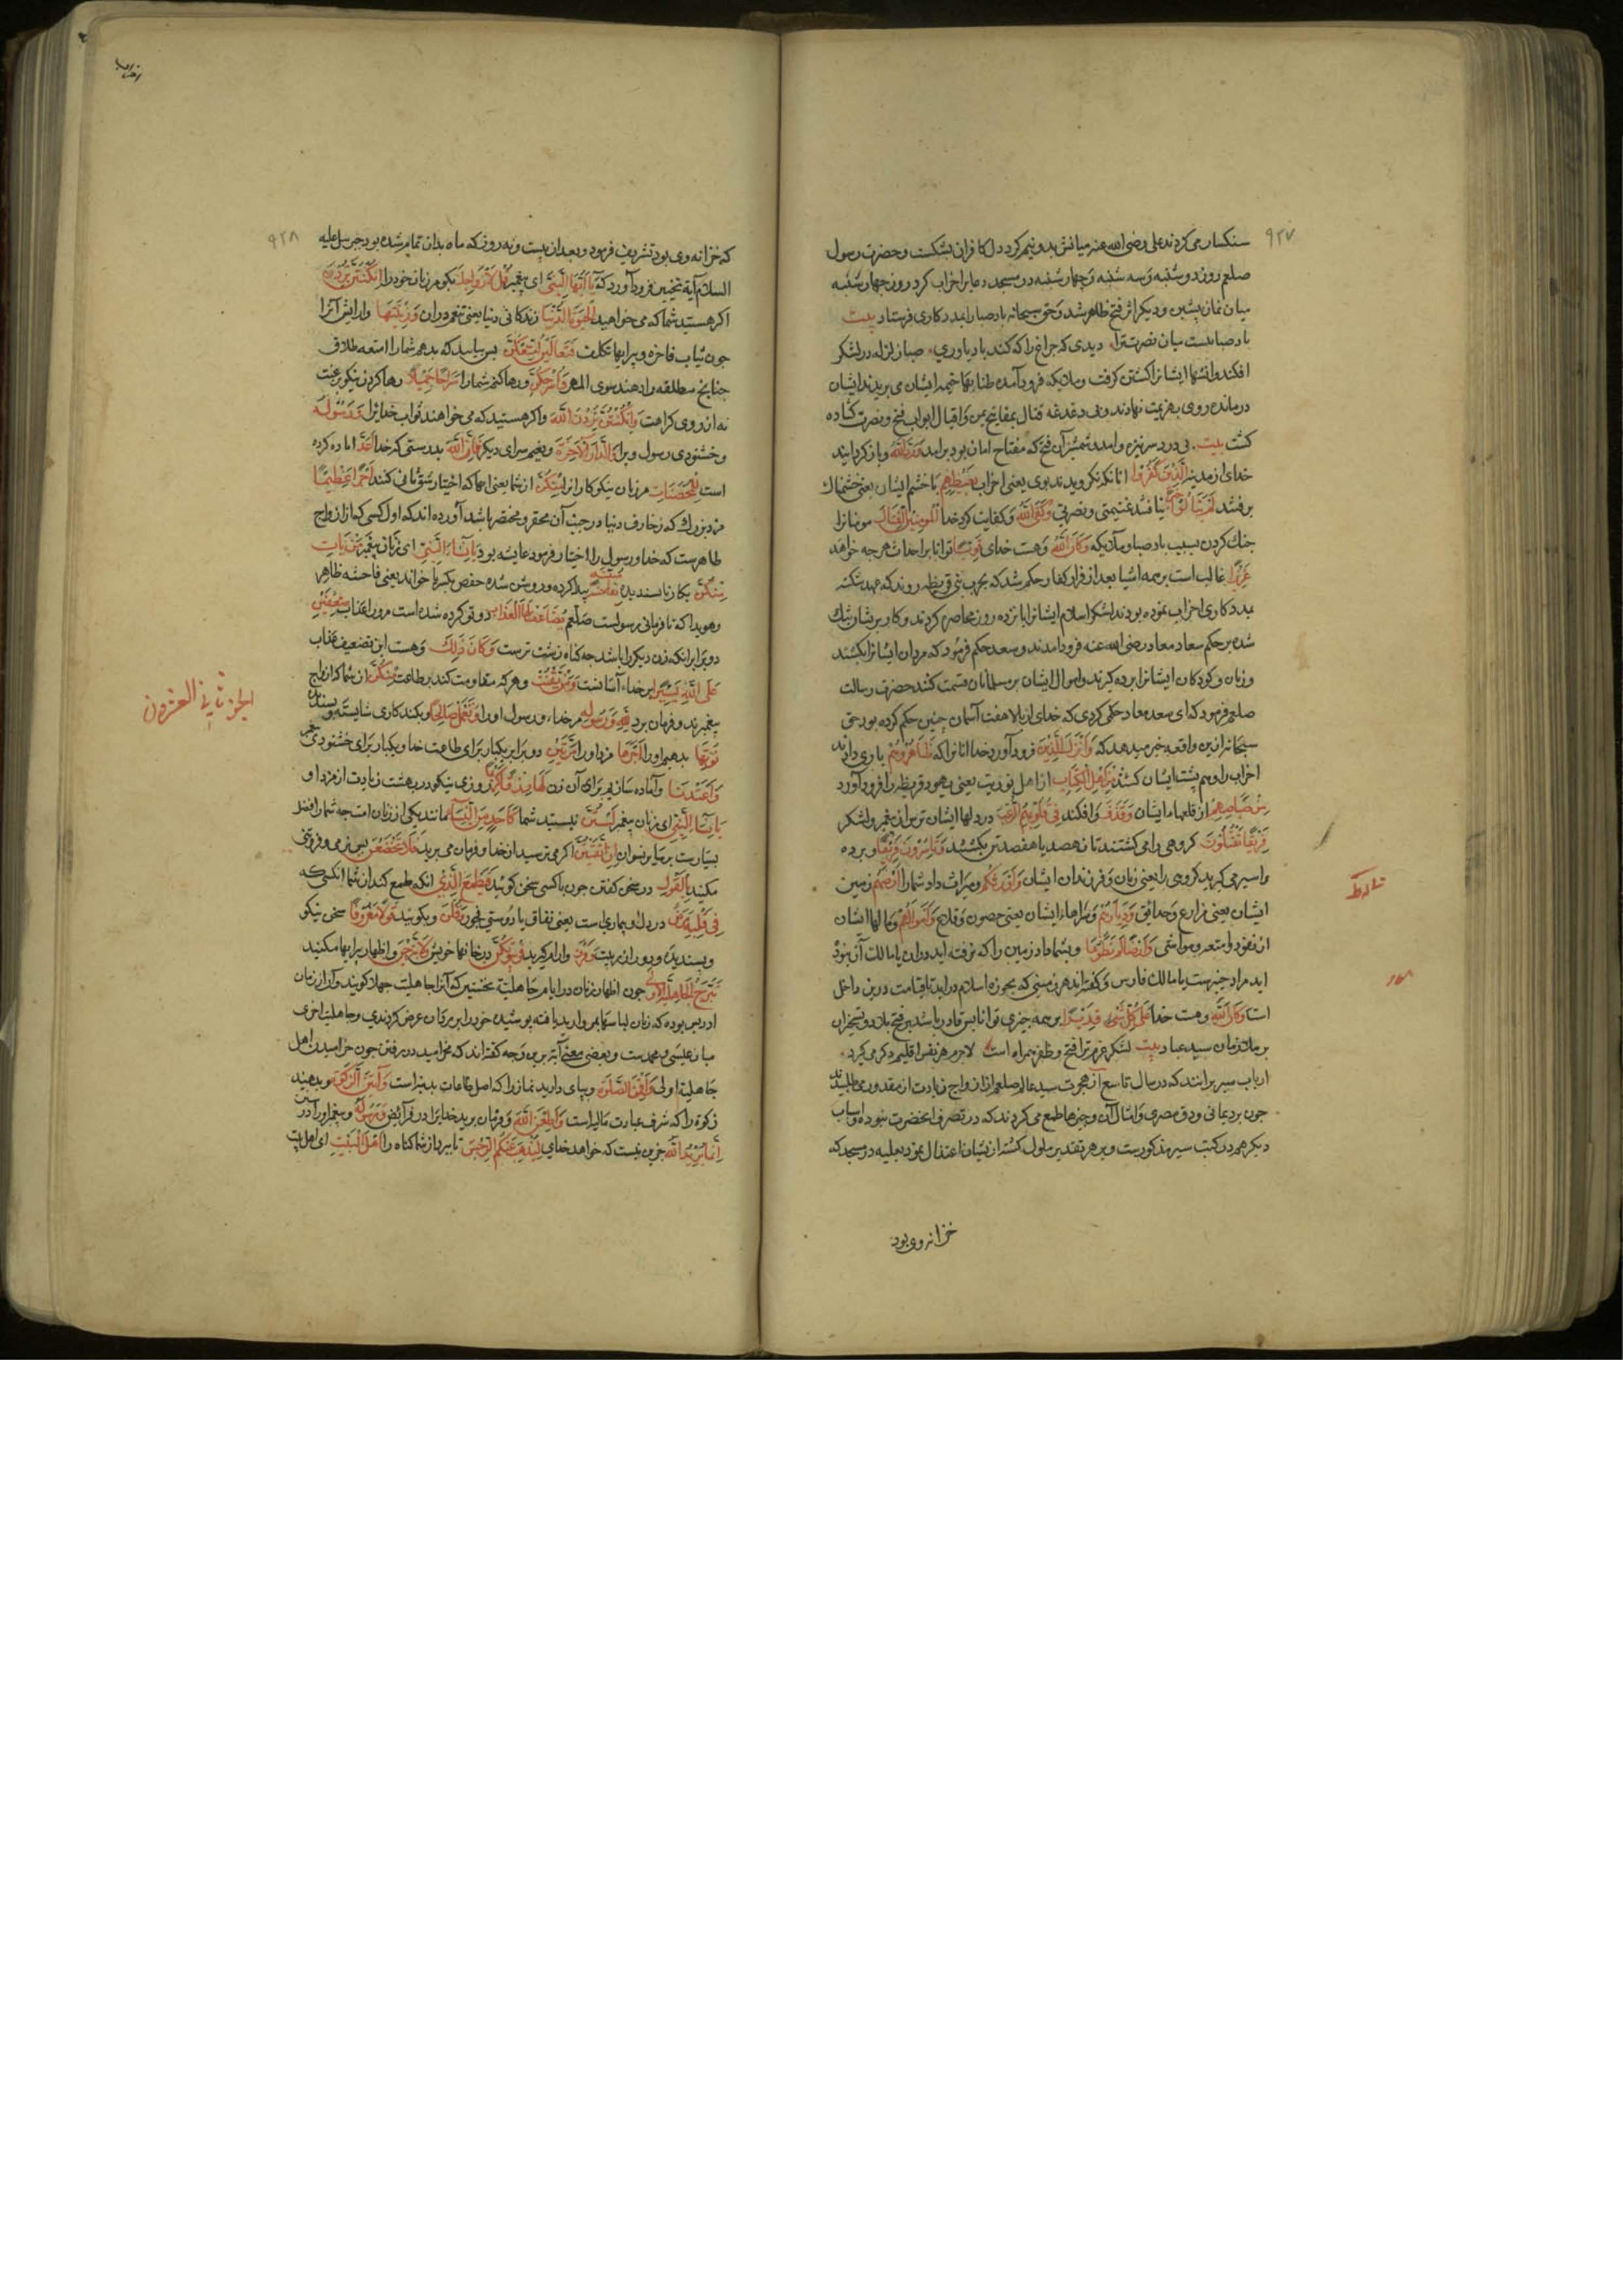 ۹۲۷
سنکسار می کردند علی رضی الله عنه میانش بدو نیم کرد دل کافران بشکست و حضرت رسول
صلعم روز دوشنبه و سه شنبه و چهار شنبه در مسجد دعا بر احزاب کرد روز چهار شنبه
میان نماز پیشین و دیکر اثر فتح ظاهر شد و حق سبحانه باد صبا را بمدد کاری فرستاد بیت
باد صباست میان نصرت ترا دیدی که چراغ را که کند باد یاوری صبا زلزله در لشکر
افکند و آتشها ایشانرا کشتن کرفت و ملایکه فرود آمده طنابهای خیمه ایشان می بریدند ایشان
درمانده روی بهزیمت نهادند و بی دغدغه قتال بمفاتیح یمن و اقبال ابواب فتح و نصرت کشاده
کشت بیت بی درد سر نیزه و امد شمشیر آن فتح که مفتاح امان بود برامد وَرَدَّ اللّٰهُ و باز کردانید
خدای از مدینه الَّذِینَ کَفَرُوا انانکه نکرویدند بوی یعنی احزاب بِغَیْظِهِمْ با خشم ایشان یعنی خشمناک
برفتند لَمْ یَنَالُوا خَیْرًا نیافتند غنیمتی و نصرتی وَکَفَی اللّٰهُ و کفایت کرد خدا الْمُؤْمِنِینَ الْقِتَالَ مومنانرا
جنک کردن بسبب باد صبا و ملایکه وَکَانَ اللّٰهُ و هست خدای قَوِیًّا توانا بر احداث هر چه خواهد
عَزِیزًا غالب است بر همه اشیا بعد از فرار کفار حکم شد که بحرب بنی قریظه روند که عهد شکنه
بمدد کاری احزاب نموده بودند لشکر اسلام ایشانرا پانزده روز محاصره کردند و کار بریشان تنک
شده بر حکم سعاد معاذ رضی الله عنه فرود امدند و سعد حکم فرمود که مردان ایشانرا بکشند
و زنان و کودکان ایشانرا برده کیرند و اموال ایشان بر مسلمانان قسمت کنند حضرت رسالت
صلعم فرمود که ای سعد معاذ حکمی کردی که خدای از بالا هفت آسمان چنین حکم کرده بود حق
سبحانه ازین واقعه خبر میدهد که وَاَنْزَلَ الَّذِینَ فرود آورد خدا انانرا که ظَاهَرُوهُمْ یاری دادند
احزاب را و هم پشت ایشان کشتند مِنْ اَهْلِ الْکِتَابِ از اهل توریت یعنی یهود قریظه را فرود آورد
مِنْ صَیَاصِیهِمْ از قلعها ایشان وَقَذَفَ و افکند فِی قُلُوبِهِمُ الرُّعْبَ در دلها ایشان ترس از پیغمبر و لشکر
فَرِیقًا تَقْتُلُونَ کروهی را می کشتند تا نهصد یا هفصد تن بکشتند وَتَأْسِرُونَ فَرِیقًا و برده
و اسیر می کیرید کروهی را یعنی زنان و فرزندان ایشان وَاَوْرَثَکُمْ و میراث داد شما را اَرْضَهُمْ زمین
ایشان یعنی مزارع و حدائق وَدِیَارَهُمْ و سراها ایشان یعنی حصون و قلاع وَاَمْوَالَهُمْ و مالها ایشان
از نقود و امتعه و مواشی وَاَرْضًا لَمْ تَطَئُوهَا و بشما داد زمین را که نرفته اید دران یا مالک آن نبوده
اید مراد خیبرست یا ممالک فارس و کفته اند هر زمینی که بحوزه اسلام در اید تا قیامت درین داخل
است وَکَانَ اللّٰهُ و هست خدا عَلٰی کُلِّ شَیْءٍ قَدِیرًا بر همه چیزی توانا بس قادر باشد بر فتح بلاد و تسخیر ان
بر ملازمان سید عباد بیت لشکر عزم ترا فتح و ظفر همراه است لاجرم هر نفس اقلیم دکر می کیرد
ارباب سیر برانند که در سال تاسع از هجرت سید عالم صلعم از ازواج زیادت از مقدور می طلبیدند
چون برد یمانی و دق مصری و امثال آن و چیزها طمع می کردند که در تصرف انحضرت نبوده و اسباب
دیکر هم در کتب سیر مذکورست و بر هر تقدیر ملول کشته از نشان اعتذال نمود بعلیه در مسجد که
خزانه وی بود
۹۲۸
که خزانه وی بود تشریف فرمود و بعد از بیست و نه روز که ماه بدان تمام شده بود جبرئیل علیه
السلام آیه تخییر فرود آورد که یَا اَیُّهَا النَّبِیُّ ای پیغمبر قُلْ لِاَزْوَاجِکَ بکو مر زنان خود را اِنْ کُنْتُنَّ تُرِدْنَ
اکر هستید شما که می خواهید الْحَیٰوةَ الدُّنْیَا زندکانی دنیا یعنی تنعم دران وَزِینَتَهَا و ارایش آنرا
چون ثیاب فاخره و پیرایها بتکلف فَتَعَالَیْنَ اُمَتِّعْکُنَّ پس بیایید که بدهم شما را متعه طلاق
چنانچ مطلقه را دهند سوی المهر وَاُسَرِّحْکُنَّ و رها کنم شما را سَرَاحًا جَمِیلًا رها کردن نیکو برغبت
نه از روی کراهت وَاِنْ کُنْتُنَّ تُرِدْنَ اللّٰهَ و اکر هستید که می خواهند ثواب خدایرا وَرَسُولَهُ
و خشنودی رسول ویرا وَالدَّارَ الْآخِرَةَ و نعیم سرای دیکر فَاِنَّ اللّٰهَ بدرستی که خدا اَعَدَّ اماده کرده
است لِلْمُحْسِنَاتِ مر زنان نیکو کار انرا مِنْکُنَّ از شما یعنی انها که اختیار شق ثانی کنند اَجْرًا عَظِیمًا
مزد بزرک که زخارف دنیا در جنب آن محقر و مختصر باشد آورده اند که اول کسی که از ازواج
طاهرست که خدا و رسول را اختیار فرمود عایشه بود یَا نِسَاءَ النَّبِیِّ ای زنان پیغمبر مَنْ یَأْتِ
مِنْکُنَّ بکار ناپسندیده بِفَاحِشَةٍ مُبَیِّنَةٍ پیدا کرده و روشن شده حفص بکسر یا خواند یعنی فاحشه ظاهر
و هویدا که نافرمانی رسولست صلعم یُضَاعَفْ لَهَا الْعَذَابُ دو تو کرده شده است مرورا عذاب ضِعْفَیْنِ
دو برابر انکه زن دیکر را باشد چه کناه زشت ترست وَکَانَ ذٰلِکَ و هست این تضعیف عذاب
عَلَی اللّٰهِ یَسِیرًا بر خداء آسانست وَمَنْ یَقْنُتْ و هر که مقاومت کند بر طاعت مِنْکُنَّ از شما که ازواج
پیغمبرند و فرمان برد لِلّٰهِ وَرَسُولِهِ مر خداء و رسول او را وَتَعْمَلْ صَالِحًا و بکند کاری شایسته و پسندیده
نُؤْتِهَا بدهیم او را اَجْرَهَا مزد او را مَرَّتَیْنِ دو برابر یکبار برای طاعت خدا و یکبار برای خشنودی
وَاَعْتَدْنَا و آماده سازیم برای آن زن لَهَا رِزْقًا کَرِیمًا روزی نیکو در بهشت زیادت از مزد او
یَا نِسَاءَ النَّبِیِّ ای زنان پیغمبر لَسْتُنَّ نیستید شما کَاَحَدٍ مِنَ النِّسَاءِ مانند یکی از زنان امت چه شما را فضل
بسیارست بر سایر نسوان اِنِ اتَّقَیْتُنَّ اکر می ترسید از خدا و فرمان می برید فَلَا تَخْضَعْنَ پس نرمی و فروتنی
مکنید بِالْقَوْلِ در سخن کفتن چون با کسی سخن کویند فَیَطْمَعَ الَّذِی انکه طمع کند از شما انکسی که
فِی قَلْبِهِ مَرَضٌ در دل او بیماری است یعنی نفاق یا دوستی فجور وَقُلْنَ و بکویند قَوْلًا مَعْرُوفًا سخن نیکو
و پسندیده و دور از ریبت وَقَرْنَ و ارام کیرید فِی بُیُوتِکُنَّ در خانها خویش وَلَا تَبَرَّجْنَ و اظهار پیرایها مکنید
تَبَرُّجَ الْجَاهِلِیَّةِ الْاُولٰی چون اظهار زنان در ایام جاهلیة نخستین که آنرا جاهلیت جهلا کویند و آن از زمان
ادریس بوده که زنان لباسها بمروارید بافته پوشیده خود را بر مردان عرض کردندی و جاهلیت اخری
میان عیسی و محمدست و بعضی معنی آیة برین وجه کفته اند که مخرامید در رفتن چون خرامیدن اهل
جاهلیة اولی وَاَقِمْنَ الصَّلٰوةَ و بپای دارید نماز را که اصل طاعات بدنیه است وَآتِینَ الزَّکٰوةَ و بدهید
زکوة را که شرف عبادت مالیه است وَاَطِعْنَ اللّٰهَ و فرمان برید خدایرا در فرائض وَرَسُولَهُ و پیغمبر او را در سنن
اِنَّمَا یُرِیدُ اللّٰهُ جزین نیست که خواهد خدای لِیُذْهِبَ عَنْکُمُ الرِّجْسَ تا ببرد از شما کناه را اَهْلَ الْبَیْتِ ای اهل بیت
الجزو ثانی العشرون